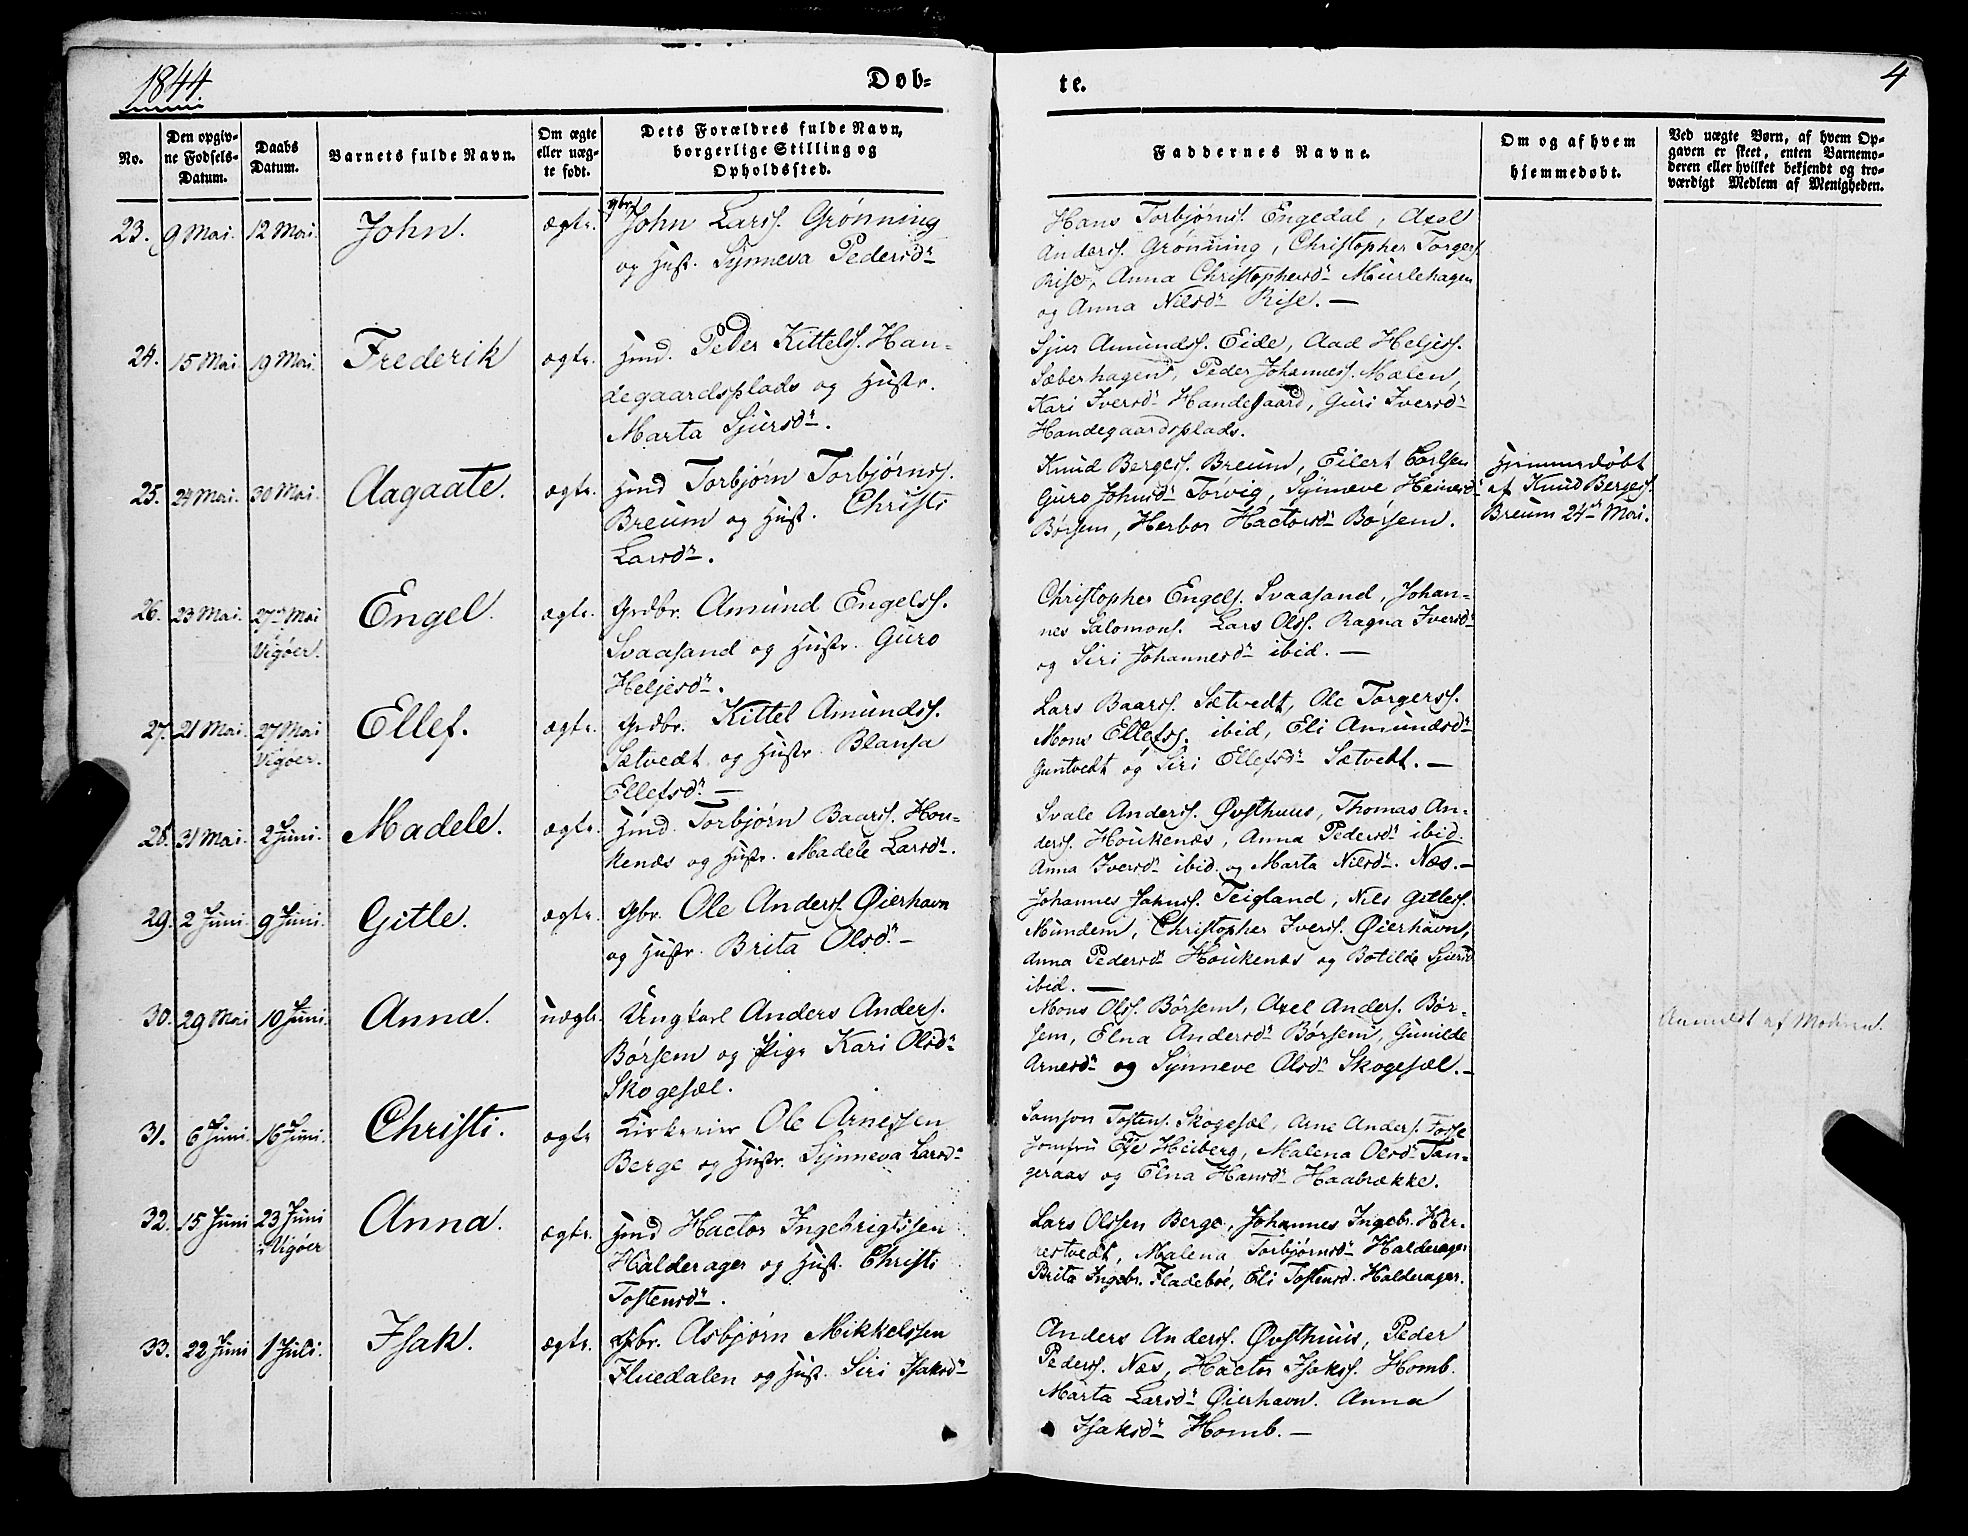 1844.
Døb=
te.
4
No.
Den opgiv=
ne Fødsels=
Datum.
Daabs
Datum.
Barnets fulde Navn.
Om ægte
eller uæg=
te født.
Dets Forældres fulde Navn,
borgerlige Stilling og
Opholdssted.
Faddernes Navne.
Om og af hvem
hjemmedøbt.
Ved uægte Børn, af hvem Op=
gaven er skeet, enten Barnemo=
deren eller hvilket bekjendt og tro=
værdigt Medlem af Menigheden.
23. 9 Mai. 12 Mai. John. ægte. gbr.
John Larss. Grønning
og Hust. Synneva Pedersdr
Hans Torbjørns. Engedal, Axel
Anderss. Grønning, Christopher Torgerss.
Rise, Anna Christophersdr Murlehagen
og Anna Nilsdr Rise. —
24. 15 Mai. 19 Mai. Frederik ægte.
Hmd. Peder Kittelss. Han=
degaardsplads og Hustr.
Marta Sjursdr.
Sjur Amundss. Eide, Aad Heljess.
Sæberhagen, Peder Johanness. Mælen,
Kari Iversdr Handegaard, Guri Iversdr
Handegaardsplads.
25. 24 Mai. 30 Mai. Aagaate. ægte.
Hmd Torbjørn Torbjørnss.
Breum og Hust. Christi
Larsdr.
Knud Bergess. Breum, Eilert Carlsen
Guro Johnsdr Torvig, Synneve Heinesdr
Børsem, Herbor Hactorsdr Børsem.
Hjemmedøbt
af Knud Bergess.
Breum 24de Mai.
26. 23 Mai. 27de Mai
Vigøer. Engel. ægte.
Grdbr. Amund Engelss.
Svaasand og Hustr. Guro
Heljesdr.
Christopher Engels. Svaasand, Johan=
nes Salomons. Lars Olss. Ragna Iversdr
og Siri Johannesdr ibid. —
27. 21 Mai. 27 Mai
Vigøer. Ellef. ægte.
Grdbr. Kittel Amundss.
Sætvedt og Hustr. Blansa
Ellefsdr. —
Lars Baarss. Sætvedt, Ole Torgerss.
Mons Ellefss. ibid, Eli Amundsdr
Guntvedt og Siri Ellefsdr Sætvedt. —
28. 31 Mai. 2 Juni. Madele. ægte.
Hmd. Torbjørn Baarss. Hou=
kenæs og Hustr. Madele Larsdr.
Svale Anderss. Øvsthuus, Thomas An=
derss. Houkenæs, Anna Pedersdr ibid.
Anna Iversdr ibid. og Marta Nilsdr. Næs. —
29. 2 Juni. 9 Juni. Gitle. ægte.
Gbr. Ole Anderss. Øierhavn
og Hustr. Brita Olsdr. —
Johannes Johnss. Teigland, Nils Gitless.
Mundem, Christopher Iverss. Øierhavn,
Anna Pedersdr Houkenæs og Botilde Sjursd
ibid. —
30. 29 Mai 10 Juni. Anna. uægte.
Ungkarl Anders Anders.
Børsem og Pige Kari Olsdr
Skogesæl.
Mons Olss. Børsem, Axel Anders. Bør=
sem, Elna Andersdr Børsem, Gunilde
Arnesdr og Synneve Olsdr Skogesæl. —
Anmeldt af Moderen.
31. 6 Juni. 16 Juni. Christi. ægte
Kirkeeier Ole Arnessen
Berge og Hustr. Synneva Larsdr
Samson Tostens. Skogesæl, Arne Anders. Fosse
Jomfru Heiberg, Malena Olsdr Tan=
geraas og Elna Hansdr Haabrække.
32. 15 Juni 23 Juni
i Vigøer Anna. ægte.
Hmd Hactor Ingebrigtssen
Halderager og Hust. Christi
Tostensdr.
Lars Olssen Berge, Johannes Ingebr. Her=
restvedt, Malena Torbjørnsdr Halderager
Brita Ingebr. Fladebøe, Eli Tostensd. Halderager.
33. 22 Juni 1 Juli. Isak. ægte.
Gbr. Asbjørn Mikkelssen
Fluedalen og Hust. Siri Isaksdr
Anders Anderss. Øvsthuus, Peder
Pederss. Næs, Hactor Isakss. Homb.
Marta Larsdr Øierhavn. Anna
Isaksdr Homb. —